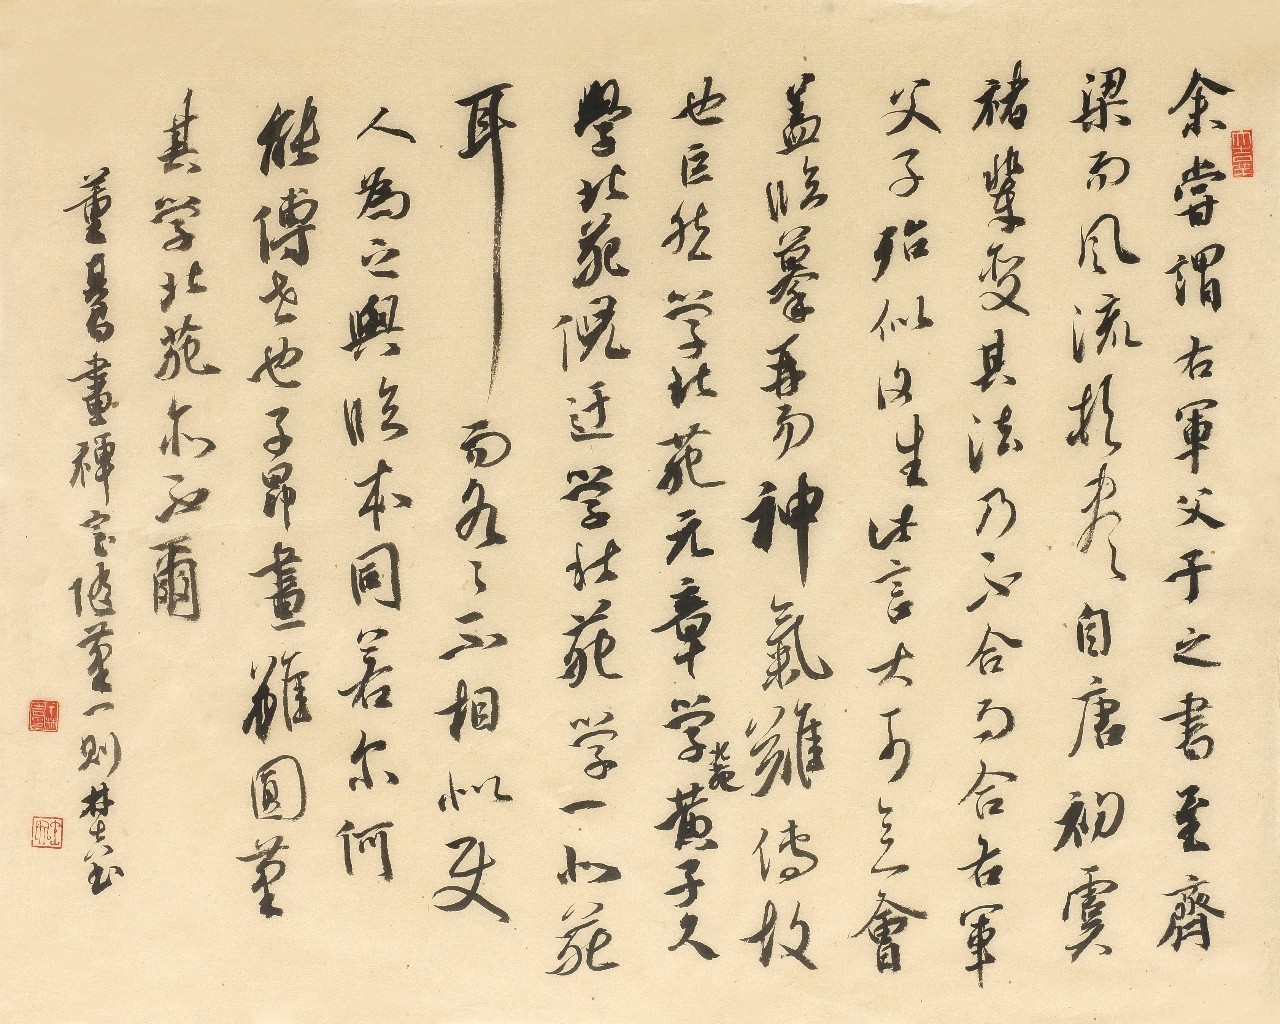 余嘗謂右軍父子之書至齊
梁而風流頓盡自唐初虞
褚輩變其法乃不合而合右軍
父子殆似復生此言大可意會
蓋臨摹再易神氣難傳故
也巨然学北苑元章学北苑黄子久
學北苑倪迂学北苑学一北苑
耳而各各不相似使
人為之與臨本同若尔何
能傳世也子昂畫雖圓筆
其学北苑亦不爾
董其昌畫禪室随筆一則